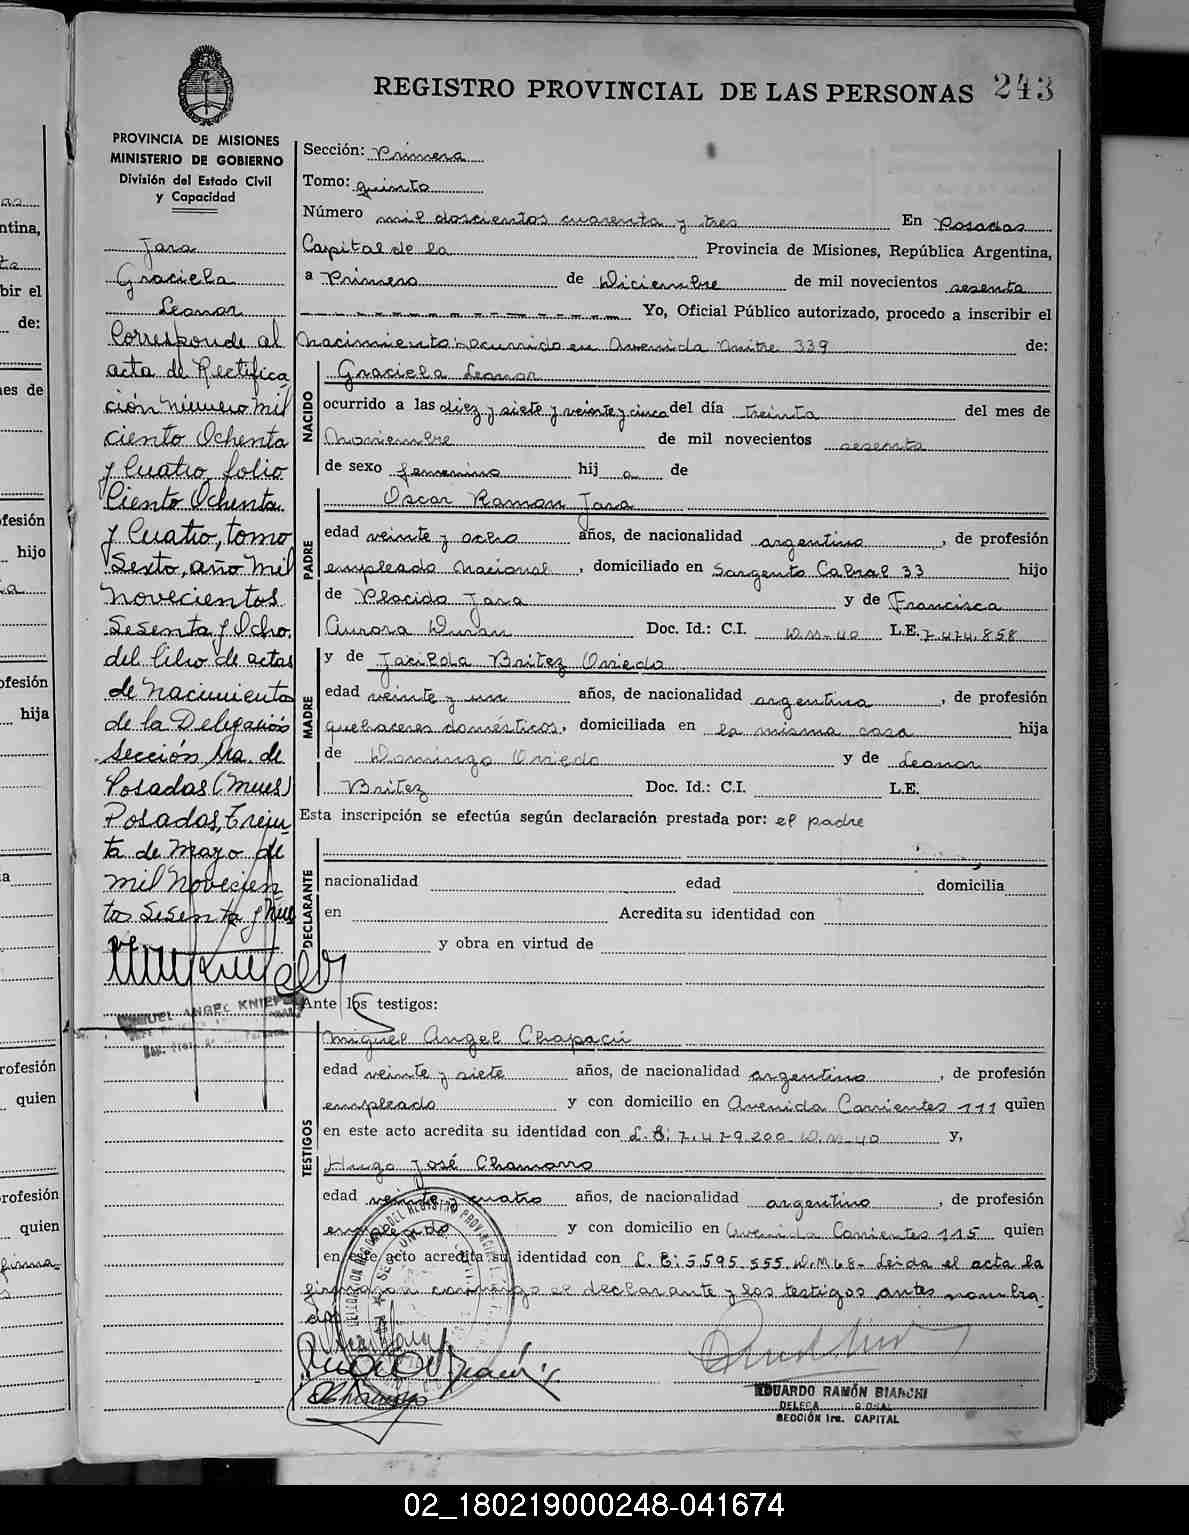 REGISTRO PROVINCIAL DE LAS PERSONAS 243
PROVINCIA DE MISIONES
MINISTERIO DE GOBIERNO
División del Estado Civil
y Capacidad
Jara
Graciela
Leonor
Corresponde al
acta de Rectifica
ción número mil
ciento Ochenta
y Cuatro, folio
Ciento Ochenta
y Cuatro, tomo
Sexto, año mil
novecientos
Sesenta y Ocho.
del libro de actas
de nacimiento
de la Delegación
Sección 1ra. de
Posadas (Mnes)
Posadas, Trein
ta de Mayo de
mil novecien
tos Sesenta y nue
ve
MIGUEL ANGEL KNIE
Sección: Primera
Tomo: quinto
Número mil doscientos cuarenta y tres En Posadas
Capital de la Provincia de Misiones, República Argentina,
a Primero de Diciembre de mil novecientos sesenta
Yo, Oficial Público autorizado, procedo a inscribir el
nacimiento ocurrido en Avenida Mitre 339 de:
NACIDO
Graciela Leonor
ocurrido a las diez y siete y veinte y cinco del día treinta del mes de
Noviembre de mil novecientos sesenta
de sexo femenino hij a de
PADRE
Oscar Ramon Jara
edad veinte y ocho años, de nacionalidad argentino, de profesión
empleado nacional, domiciliado en Sargento Cabral 33 hijo
de Placido Jara y de Francisca
Aurora Duran Doc. Id.: C.I. D.M-40 L.E. 7.474.858
MADRE
y de Jacilda Britez Oviedo
edad veinte y un años, de nacionalidad argentina, de profesión
quehaceres domésticos, domiciliada en la misma casa hija
de Domingo Oviedo y de Leonor
Britez Doc. Id.: C.I. L.E.
Esta inscripción se efectúa según declaración prestada por: el padre
DECLARANTE
nacionalidad edad domicilia
en Acredita su identidad con
y obra en virtud de
Ante los testigos:
TESTIGOS
Miguel Angel Chapacú
edad veinte y siete años, de nacionalidad argentino, de profesión
empleado y con domicilio en Avenida Corrientes 111 quien
en este acto acredita su identidad con L.E: 7.479.200 D.M-40 y,
Hugo José Chamorro
edad veinte y cuatro años, de nacionalidad argentino, de profesión
empleado y con domicilio en Avenida Corrientes 115 quien
en este acto acredita su identidad con L.E: 5.595.555 D.M 68- Leida el acta la
firmaron conmigo el declarante y los testigos antes nombra-
dos
EDUARDO RAMÓN BIANCHI
SECCIÓN 1ra. CAPITAL
ntina,
bir el
de:
es de
fesión
hijo
ofesión
hija
rofesión
quien
rofesión
quien
firma-
02_180219000248-041674